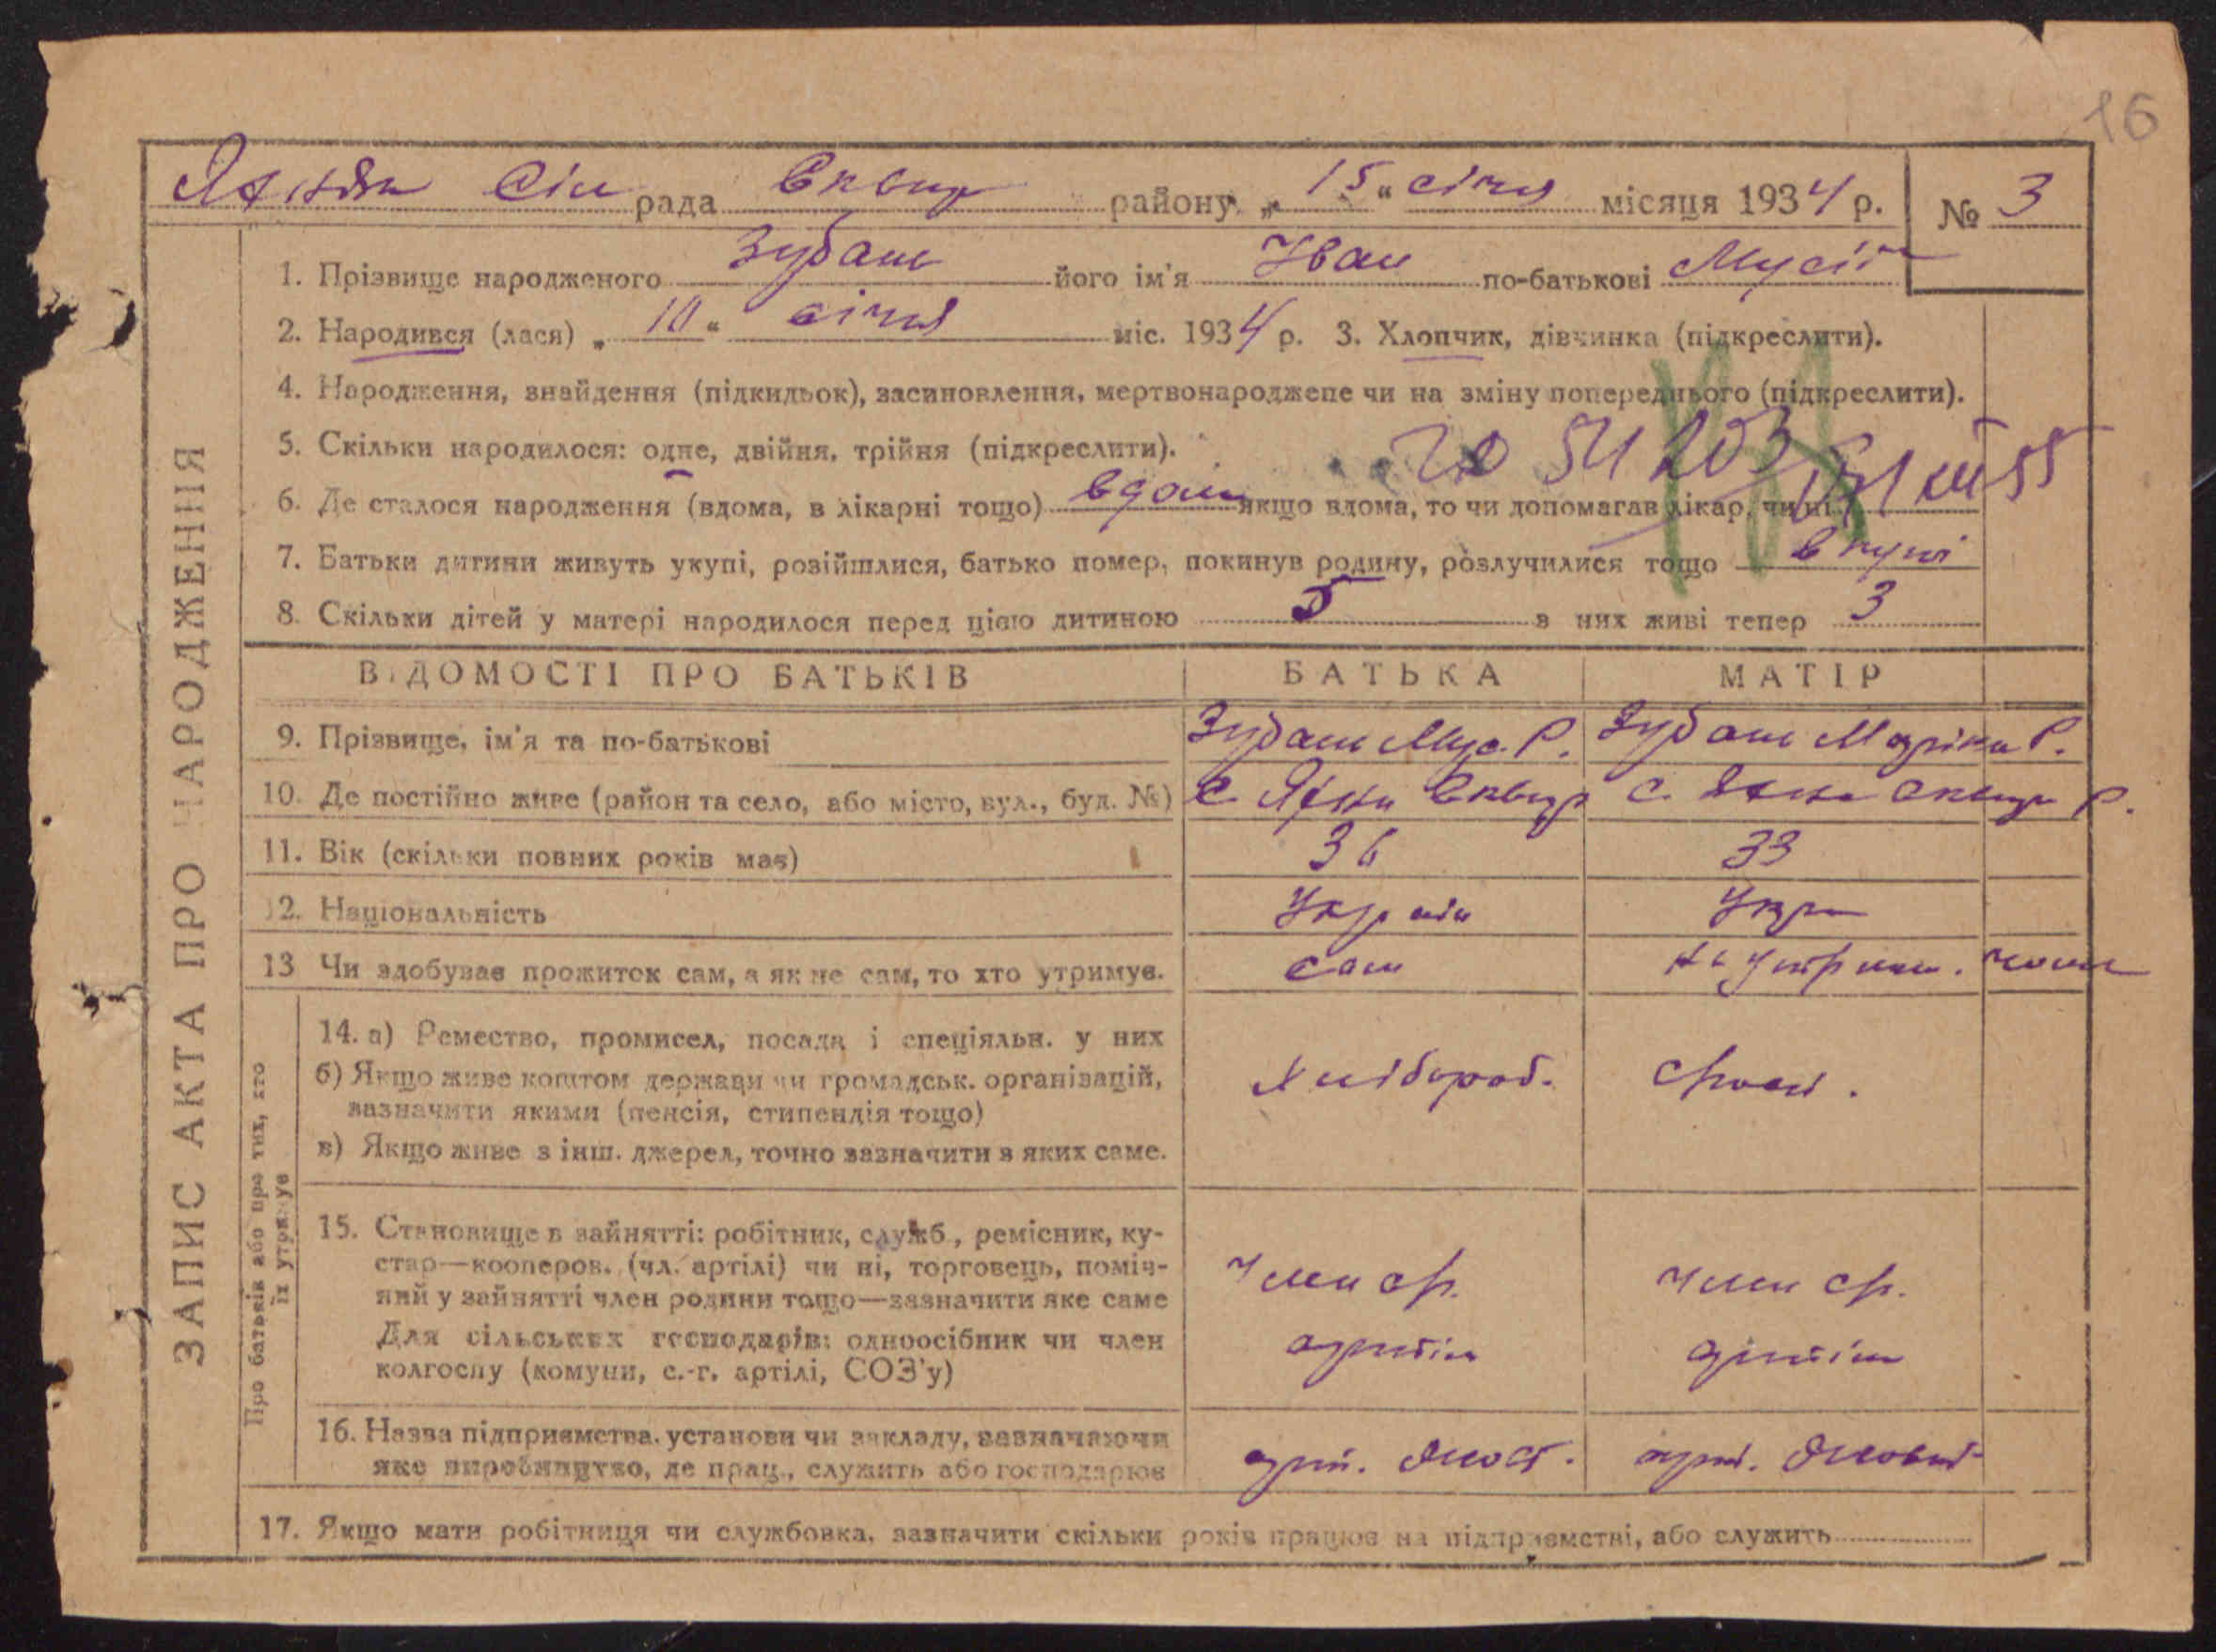 16
Сіл рада Сквир району „15“ січня місяця 1934 р. № 3
1. Прізвище народженого Зубаш його ім'я Іван по-батькові Мусій
2. Народився (лася) „10“ січня міс. 1934 р. 3. Хлопчик, дівчинка (підкреслити).
4. Народження, знайдення (підкидьок), засиновлення, мертвонароджене чи на зміну попереднього (підкреслити).
5. Скільки народилося: одне, двійня, трійня (підкреслити).
6. Де сталося народження (вдома, в лікарні тощо) вдома якщо вдома, то чи допомагав лікар, чи ні
7. Батьки дитини живуть укупі, розійшлися, батько помер, покинув родину, розлучилися тощо вкупі
8. Скільки дітей у матері народилося перед цією дитиною 5 з них живі тепер 3
ЗАПИС АКТА ПРО НАРОДЖЕННЯ
ВІДОМОСТІ ПРО БАТЬКІВ БАТЬКА МАТІР
9. Прізвище, ім'я та по-батькові Зубаш Мус. Р. Зубаш Р.
10. Де постійно живе (район та село, або місто, вул., буд. №) с. Сквир с. Сквир р.
11. Вік (скільки повних років має) 36 33
12. Національність Україн Укр
13 Чи здобуває прожиток сам, а як не сам, то хто утримує. сам на утриман. чолов
Про батьків або про тих, хто їх утримує
14. а) Ремество, промисел, посада і спеціяльн. у них
б) Якщо живе коштом держави чи громадськ. організацій, Хлібороб.
зазначити якими (пенсія, стипендія тощо)
в) Якщо живе з інш. джерел, точно зазначити з яких саме.
15. Становище в зайнятті: робітник, служб., ремісник, ку-
стар—кооперов. (чл. артілі) чи ні, торговець, поміч- член ср. член ср.
ний у зайнятті член родини тощо—зазначити яке саме
Для сільських господарів: одноосібник чи член артіл артіл
колгоспу (комуни, с.-г. артілі, СОЗ'у)
16. Назва підприємства, установи чи закладу, зазначаючи
яке виробництво, де прац., служить або господарює арт. арт.
17. Якщо мати робітниця чи службовка, зазначити скільки років працює на підприємстві, або служить